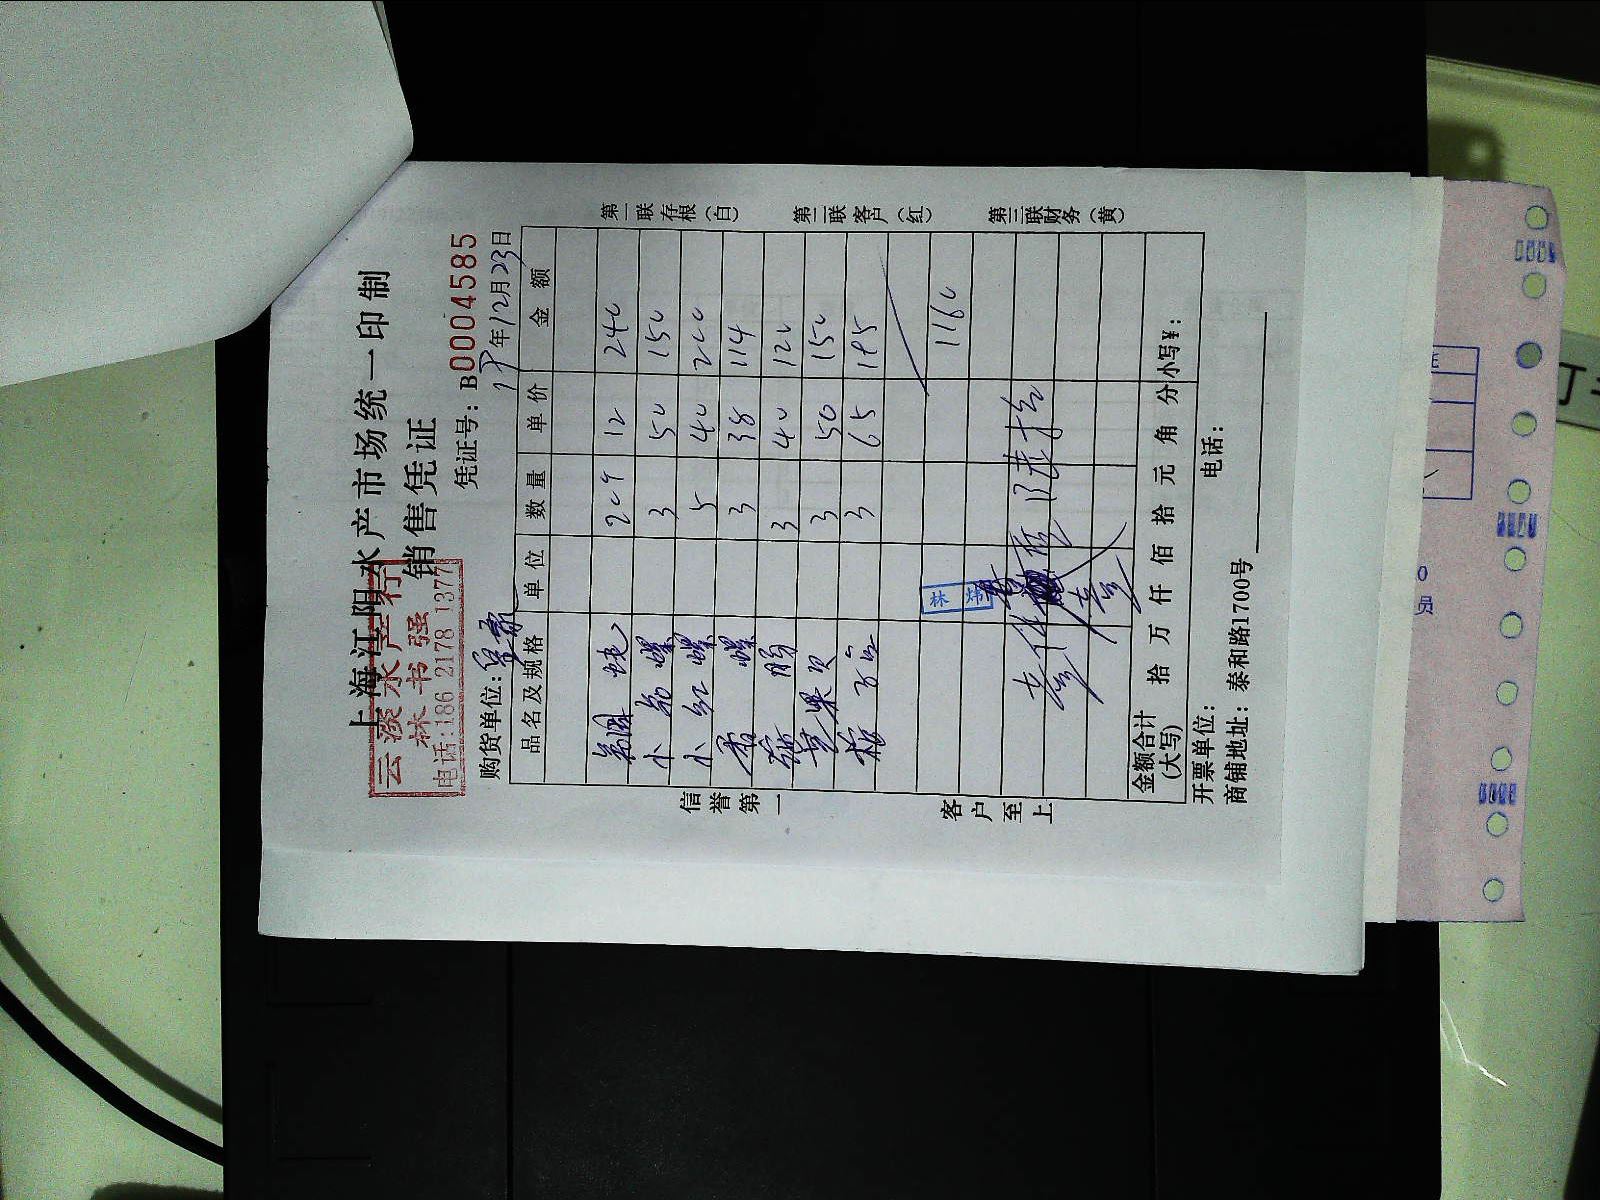 上海江阳水产市场统一印制
销售凭证
云淡水产行
林书强
电话:186 2178 1377
凭证号: B0004585
购货单位:
17年12月23日
品名及规格 单位 数量 单价 金额
20斤 12 240
小 螺 3 50 150
小红螺 5 40 200
香螺 3 38 114
3 40 120
3 50 150
3 65 185
1160
林炜
金额合计(大写) 拾 万 仟 佰 拾 元 角 分 小写¥:
开票单位: 电话:
商铺地址: 泰和路1700号
信誉第一
客户至上
第一联存根(白)
第二联客户(红)
第三联财务(黄)
员